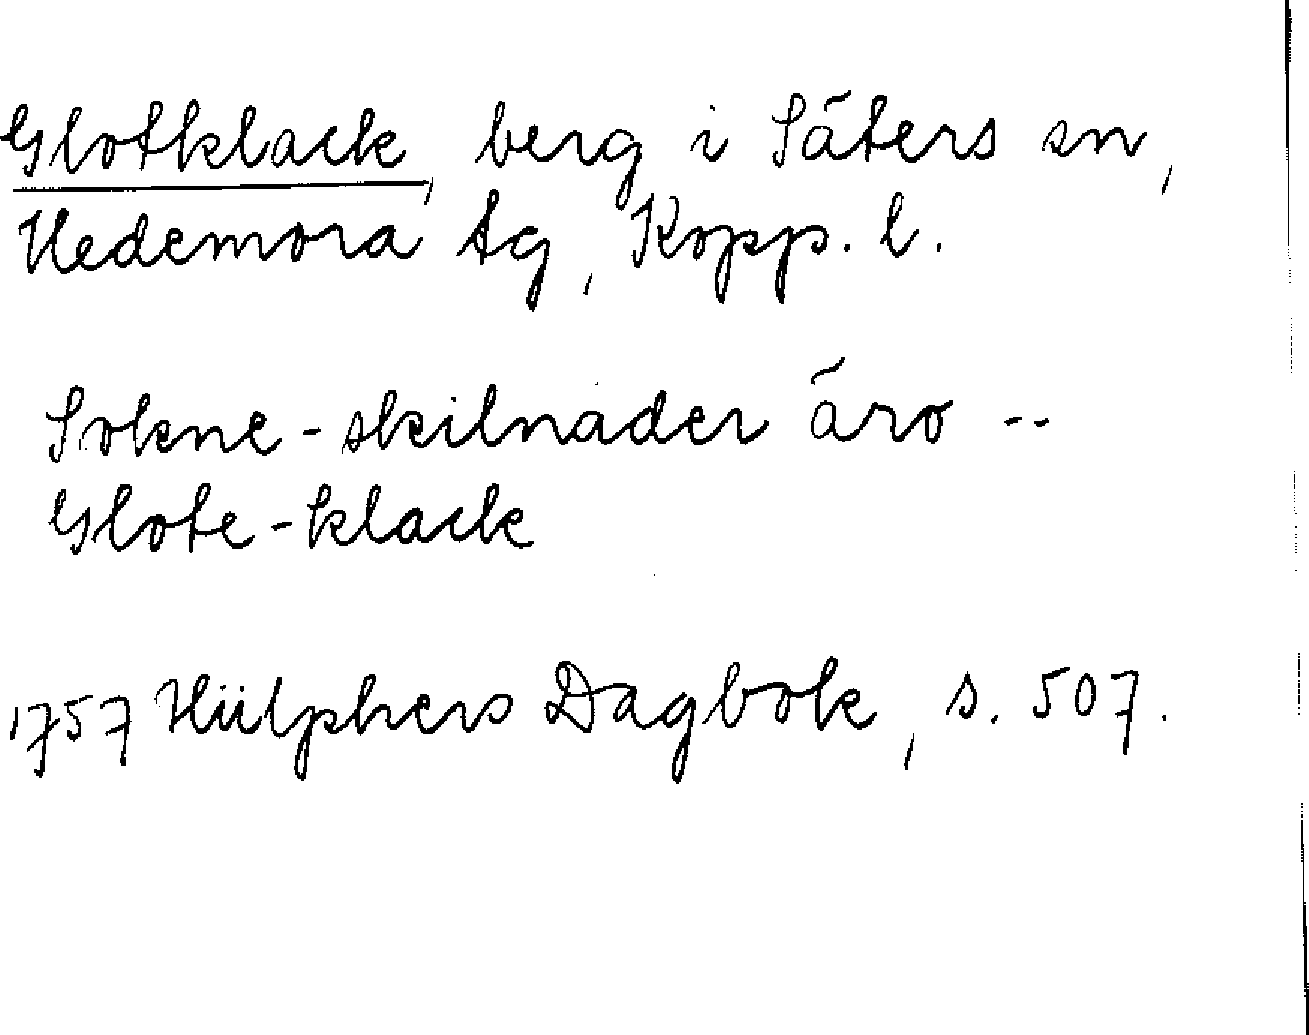 Glotklack, berg i Säters sn,
Hedemora tg, Kopp. l.
Sokne-skilnader äro --
Glote-klack
1757 Hülphers Dagbok, s. 507.